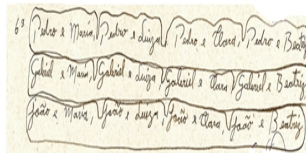 6) Pedro e Maria, Pedro e Luiza, Pedro e Clara, Pedro e Beatriz
Gabriel e Maria, Gabriel e Luiza, Gabriel e Clara, Gabriel e Beatriz
João e Maria, João e Luiza, João e Clara, João e Beatriz